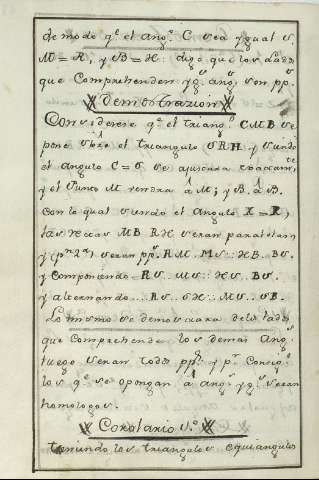 de modo q.e el ang.o C sea ygual S.
M = R, y B = H: digo que los lados
que Comprehenden yg.s ang.s son pp.s
Demostrazion
Considerese q.e el triang.o CMB se
pone sobre el triangulo SRH y siendo
el angulo C = S se ajustara exactam.te
y el punto M vendra á M; y B. á B.
Con lo qual siendo el angulo X = R,
las rectas MB RH seran paralelas
y (p.r 2.a) seran pp.s RM.. MS :: HB.. BS.
y componiendo = RS.. MS :: HS.. BS.
y alternando ... RS.. SH :: MS.. SB.
Lo mismo se demostrara de los lados
que Comprehende los demas Ang.s
luego seran todos pp.s y p.r Consig.te
los q.e se opongan á ang.s yg.s seran
homologos.
Corolario 1.o
teniendo los triangulos equiangulos